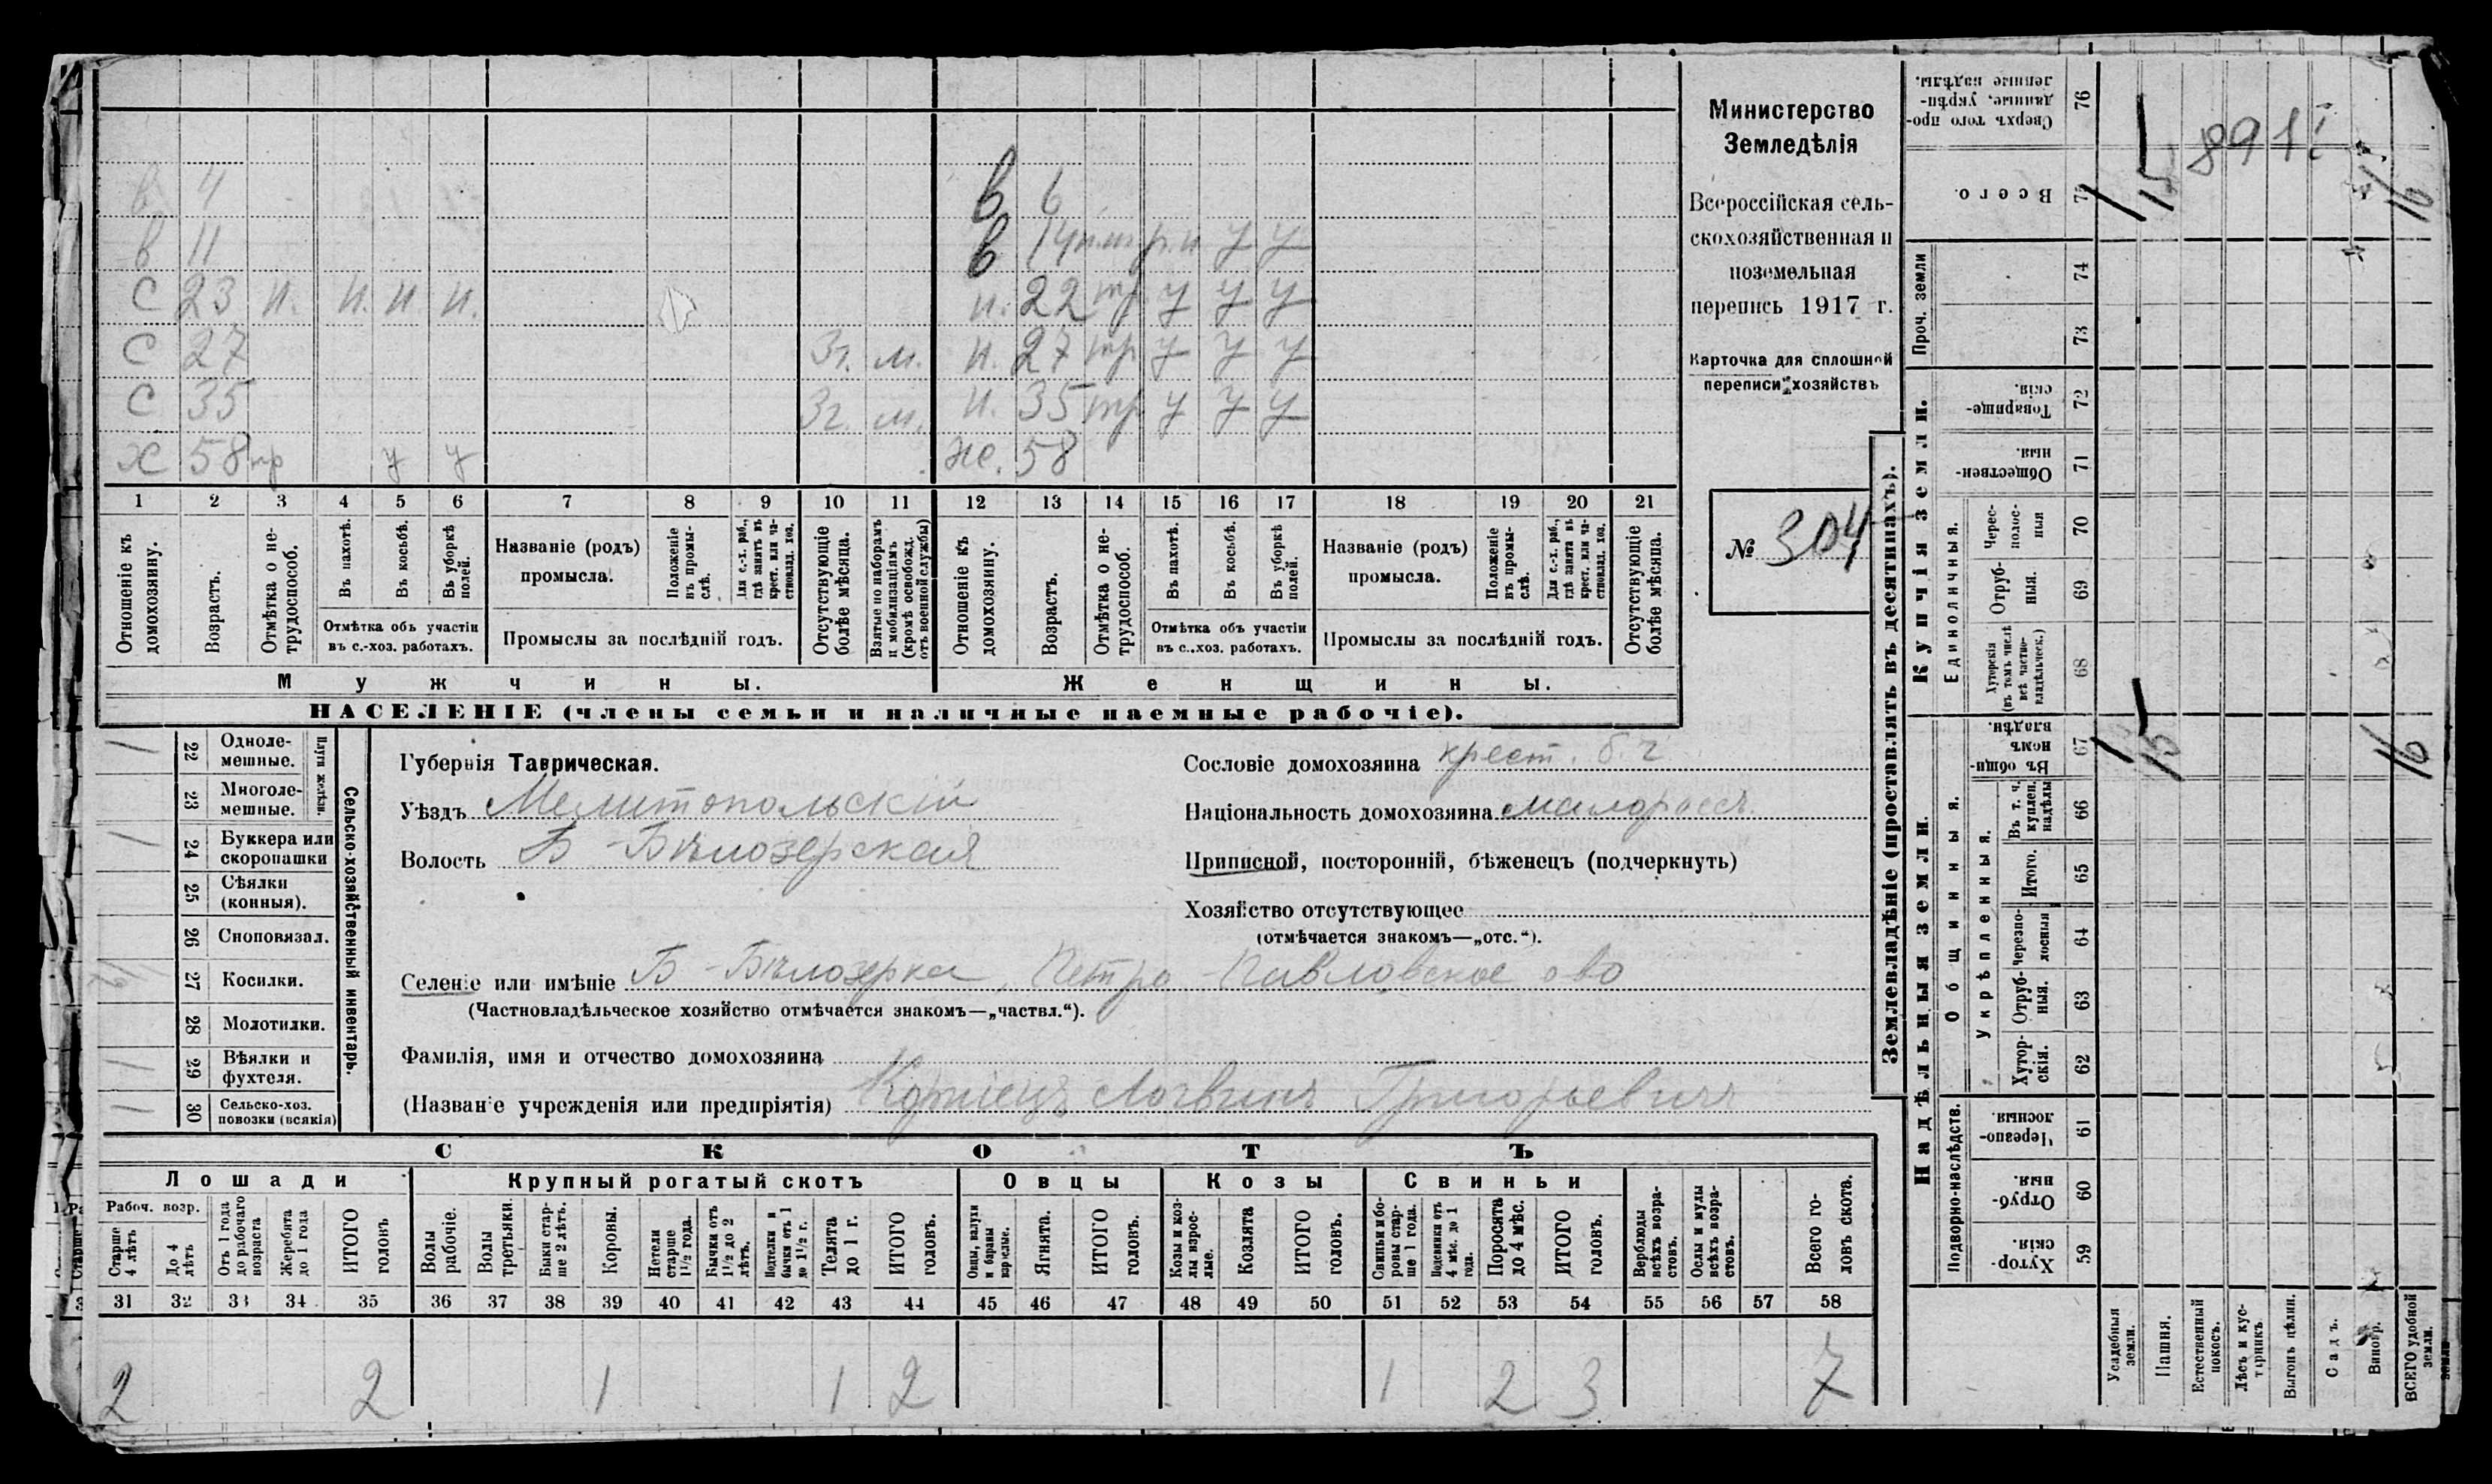 Министерство
Земледѣлія
Всероссійская сель-
скохозяйственная и
поземельная
перепись 1917 г.
Карточка для сплошной
переписи хозяйствъ
№ 304
в 4
в 11
с 23 н. н. н. н.
с 27 3г. м.
с 35 3г. м.
х 58 нр у у
в 6
в 14 у у
н. 22 нр у у у
н. 27 нр у у у
н. 35 нр у у у
же. 58
1 2 3 4 5 6 7 8 9 10 11 12 13 14 15 16 17 18 19 20 21
Отношеніе къ домохозяину.
Возрастъ.
Отмѣтка о не-трудоспособ.
Въ пахотѣ.
Въ косьбѣ.
Въ уборкѣ полей.
Отмѣтка объ участіи
въ с.-хоз. работахъ.
Названіе (родъ)
промысла.
Положеніе въ промы-слѣ.
Для с.-х. раб., гдѣ занятъ въ крест. или ча-стновлад. хоз.
Промыслы за послѣдній годъ.
Отсутствующіе болѣе мѣсяца.
Взятые по наборамъ и мобилизаціямъ (кромѣ освобожд. отъ военной службы)
Отношеніе къ домохозяину.
Возрастъ.
Отмѣтка о не-трудоспособ.
Въ пахотѣ.
Въ косьбѣ.
Въ уборкѣ полей.
Отмѣтка объ участіи
въ с..хоз. работахъ.
Названіе (родъ)
промысла.
Положеніе въ промы-слѣ.
Для с.-х. раб., гдѣ занята въ крест. или ча-стновлад. хоз.
Промыслы за послѣдній годъ.
Отсутствующіе болѣе мѣсяца.
Мужчины. Женщины.
НАСЕЛЕНІЕ (члены семьи и наличные наемные рабочіе).
Сельско-хозяйственный инвентарь.
Плуги желѣзн.
/ 22 Одноле-мешные.
23 Многоле-мешные.
/ 24 Буккера или скоропашки
25 Сѣялки (конныя).
26 Сноповязал.
27 Косилки.
28 Молотилки.
/ 29 Вѣялки и фухтеля.
/ 30 Сельско-хоз. повозки (всякія)
Губернія Таврическая.
Уѣздъ Мелитопольскій
Волость Б-Бѣлозерская
Сословіе домохозяина крест. б. г.
Національность домохозяина малоросс.
Приписной, посторонній, бѣженецъ (подчеркнуть)
Хозяйство отсутствующее
(отмѣчается знакомъ—„отс.“).
Селеніе или имѣніе Б-Бѣлозерка, Петро-Павловское о-во
(Частновладѣльческое хозяйство отмѣчается знакомъ—„частвл.“).
Фамилія, имя и отчество домохозяина
(Названіе учрежденія или предпріятія) Корніецъ Логвинъ Григорьевичъ
СКОТЪ
Лошади Крупный рогатый скотъ Овцы Козы Свиньи
Рабоч. возр.
Старше 4 лѣтъ
До 4 лѣтъ
Отъ 1 года до рабочаго возраста
Жеребята до 1 года
ИТОГО головъ
Волы рабочіе.
Волы третьяки.
Быки стар-ше 2 лѣтъ.
Коровы.
Нетели старше 1½ года.
Бычки отъ 1½ до 2 лѣтъ.
Подтелки и бычки отъ 1 до 1½ г.
Телята до 1 г.
ИТОГО головъ.
Овцы, валухи и бараны взрослые.
Ягнята.
ИТОГО головъ.
Козы и коз-лы взрос-лые.
Козлята
ИТОГО головъ.
Свиньи и бо-ровы стар-ше 1 года.
Подсвинки отъ 4 мѣс. до 1 года.
Поросята до 4 мѣс.
ИТОГО головъ.
Верблюды всѣхъ возра-стовъ.
Ослы и мулы всѣхъ возра-стовъ.
Всего го-ловъ скота.
31 32 33 34 35 36 37 38 39 40 41 42 43 44 45 46 47 48 49 50 51 52 53 54 55 56 57 58
2 2 1 1 2 1 2 3 7
Землевладѣніе (проставлять въ десятинахъ).
Надѣльныя земли. Купчія земли. Проч. земли
Подворно-наслѣдств. Общинныя. Укрѣпленныя. Единоличныя.
Сверхъ того про-данные, укрѣп-ленные надѣлы. 76
Всего. 75
74
73
Товарище-скія. 72
Обществен-ныя. 71
Черес-полос-ныя 70
Отруб-ныя. 69
Хуторскія (въ томъ числѣ всѣ частно-владѣльческ.) 68
Въ общи-номъ владѣн. 67
Въ т. ч. куплен. надѣлы 66
Итого. 65
Черезпо-лосныя 64
Отруб-ныя. 63
Хутор-скія. 62
Черезпо-лосныя. 61
Отруб-ныя. 60
Хутор-скія. 59
Усадебныя земли.
Пашня.
Естественный покосъ.
Лѣсъ и кус-тарникъ.
Выгонъ цѣлин.
Садъ.
Виногр.
ВСЕГО удобной земли.
1 15 16
1 15 16